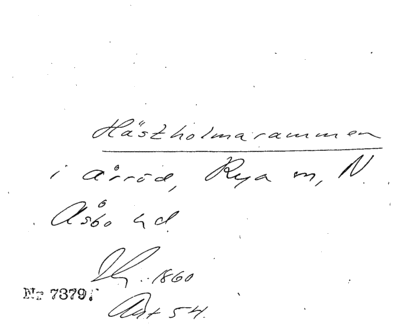 Hästholmarammen
i Årröd, Rya sn, N.
Åsbo hd.
1860
Nr 7379.
Art 54.